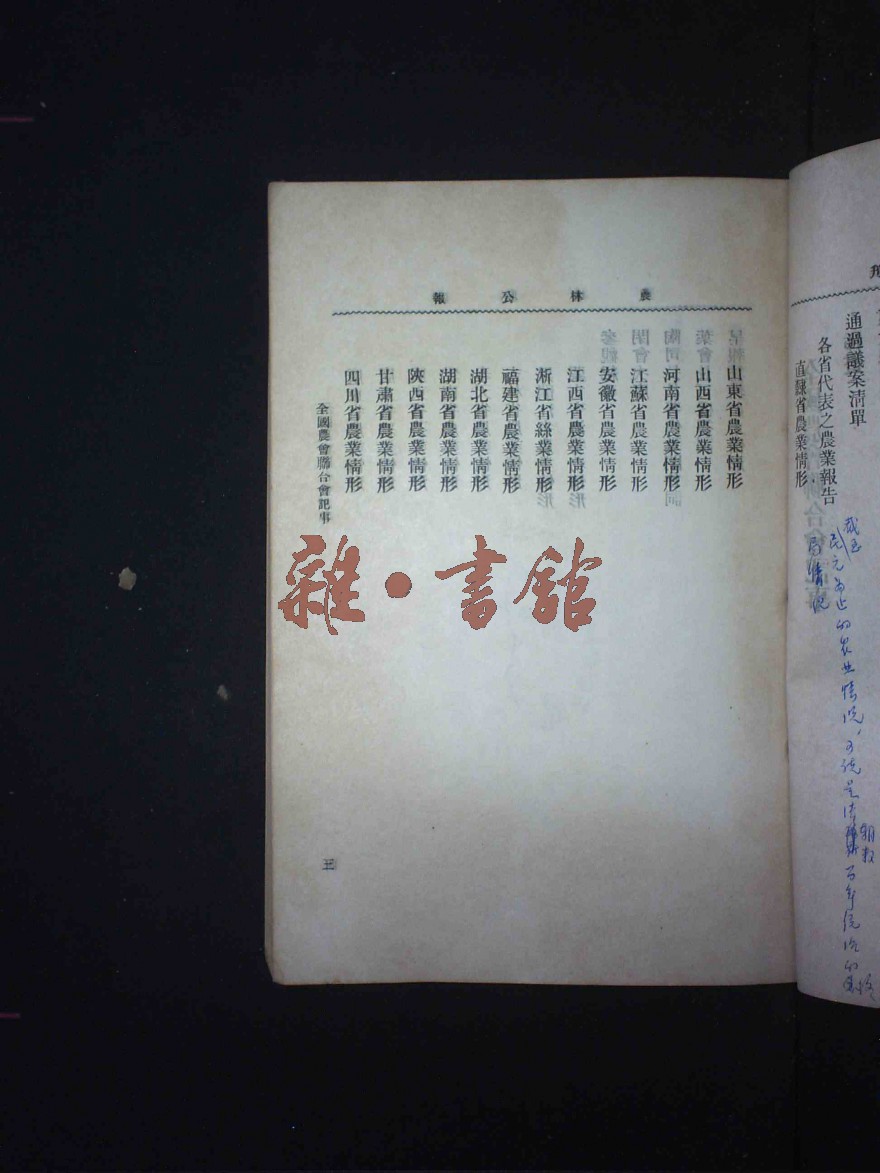 農林公報
通過議案清單
各省代表之農業報告
直隸省農業情形
山東省農業情形
山西省農業情形
河南省農業情形
江蘇省農業情形
安徽省農業情形
江西省農業情形
浙江省絲業情形
福建省農業情形
湖北省農業情形
湖南省農業情形
陝西省農業情形
甘肅省農業情形
四川省農業情形
全國農會聯合會記事
三
雜·書館